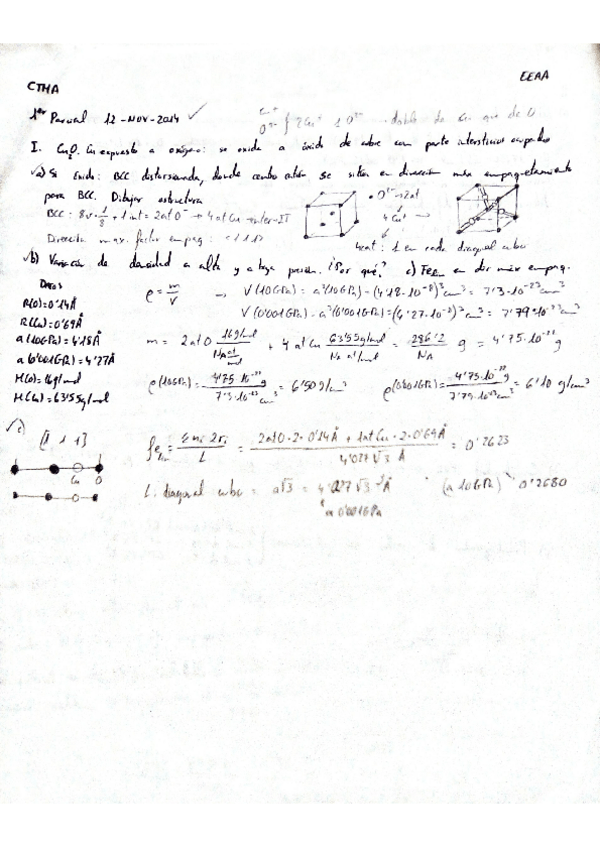 CTMA EEAA
1er Parcial 12-NOV-2014
Cu+ O2- { 2Cu+ 1 O2- → doble de Cu que de O
I. Cu2O. Cu expuesto a oxígeno: se oxida a óxido de cobre con parte intersticios ocupados
a) Si óxido: BCC distorsionada, donde cada átomo se sitúa en dirección más empaquetamiento
para BCC. Dibujar estructura
BCC: 8v·1/8 + 1 int = 2 at O → 4 at Cu inter-IT
• O2- → 2at
4 Cu+
Dirección max. factor empaq: <111>
4cat: 1 en cada diagonal cubo
b) Variación de densidad a alta y a baja presión. ¿Por qué? c) FEm en dir máx empaq.
Datos
R(O)=0'14Å
R(Cu)=0'69Å
a(10GPa)=4'18Å
a(0'001GPa)=4'27Å
M(O)=16g/mol
M(Cu)=63'55g/mol
ρ = m/V → V(10GPa) = a³(10GPa) = (4'18·10⁻⁸)³cm³ = 7'3·10⁻²³cm³
V(0'001GPa) = a³(0'001GPa) = (4'27·10⁻⁸)³cm³ = 7'79·10⁻²³cm³
m = 2at O 16g/mol / NA at/mol + 4 at Cu 63'55g/mol / NA at/mol = 286'2 / NA g = 4'75·10⁻²² g
ρ(10GPa) = 4'75·10⁻²²g / 7'3·10⁻²³cm³ = 6'50 g/cm³
ρ(0'001GPa) = 4'75·10⁻²²g / 7'79·10⁻²³cm³ = 6'10 g/cm³
c) [1 1 1]
Cu O
= Σni 2ri / L = 2at O·2·0'14Å + 1at Cu·2·0'69Å / 4'027√3 Å = 0'2623
L. diagonal cubo = a√3 = 4'027√3 Å (a 10GPa) 0'2680
a 0'001GPa